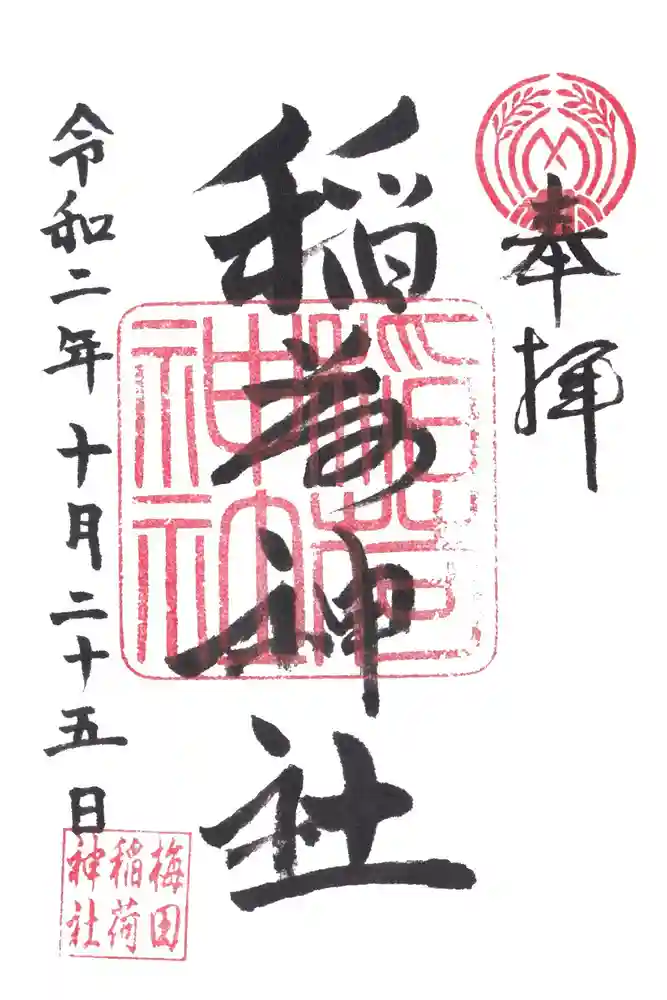 奉拝
稲荷神社
神社
令和二年十月二十五日
梅田
稲荷
神社